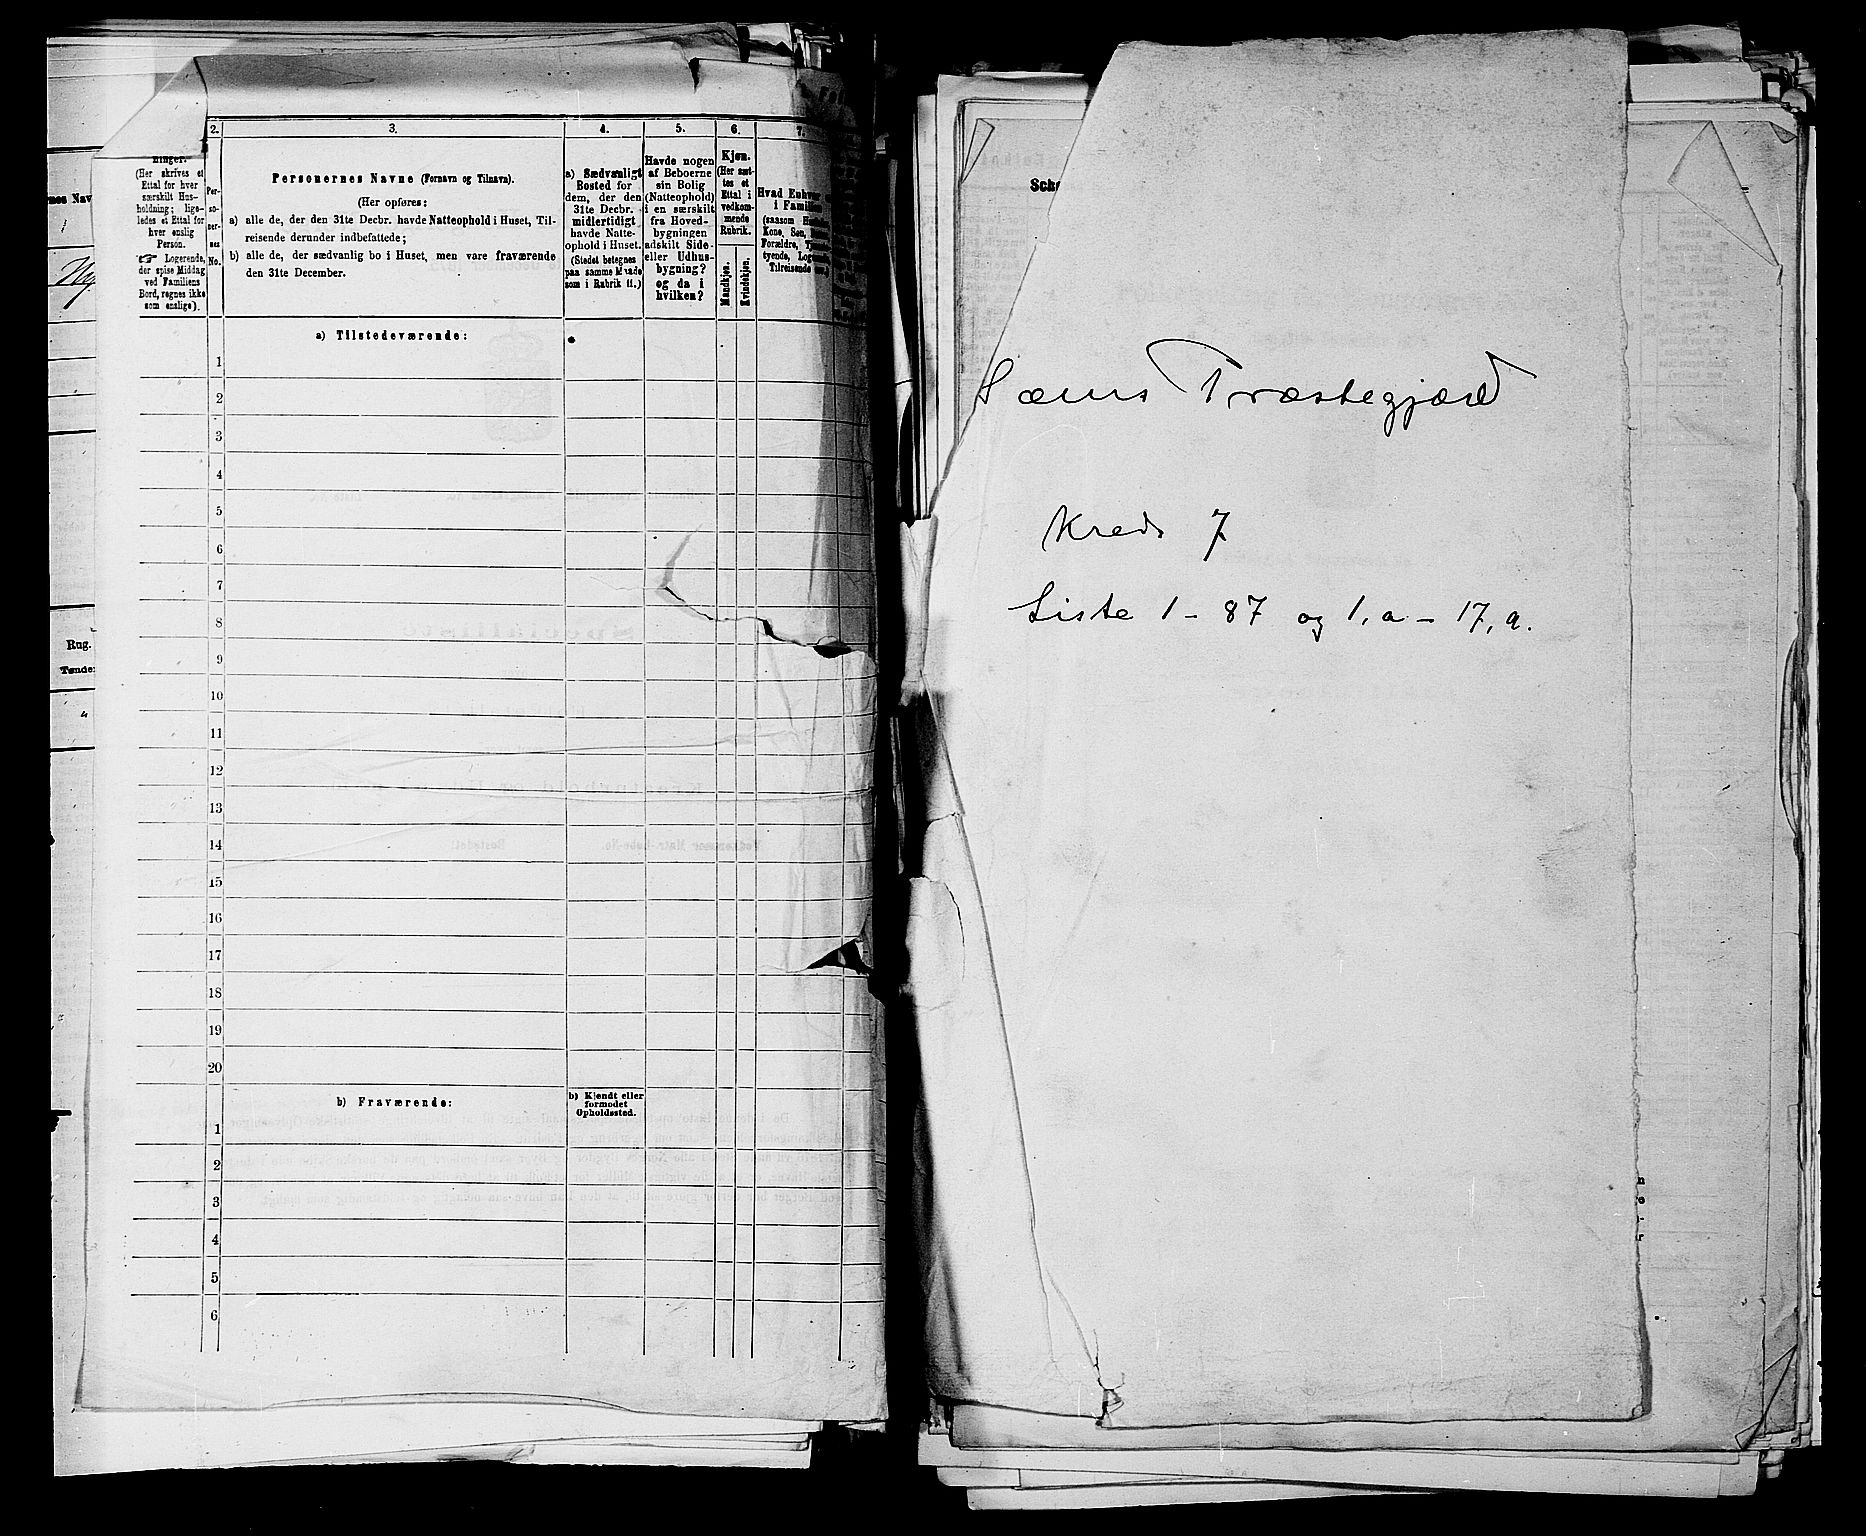 2.
3.
4.
5.
6.
7.
(Her skrives et
Ettal for hver
særskilt Hus-
holdning; lige-
ledes et Ettal for
hver enslig
Person.
☞ Logerende,
der spise Middag
ved Familiens
Bord, regnes ikke
som enslige).
Per-
so-
ner-
nes
No.
Personernes Navne (Fornavn og Tilnavn).
(Her opføres:
a) alle de, der den 31te Decbr. havde Natteophold i Huset, Til-
reisende derunder indbefattede;
b) alle de, der sædvanlig bo i Huset, men vare fraværende
den 31te December.
a) Sædvanligt
Bosted for
dem, der den
31te Decbr.
midlertidigt
havde Natte-
ophold i Huset.
(Stedet betegnes
paa samme Maade
som i Rubrik 11.)
Havde nogen
af Beboerne
sin Bolig
(Natteophold)
i en særskilt
fra Hoved-
bygningen
adskilt Side-
eller Udhus-
bygning?
og da i
hvilken?
Kjøn.
(Her sæt-
tes et
Ettal i
vedkom-
mende
Rubrik.
Mandkjøn.
Kvindekjøn.
Hvad Enhver
i Familien
(saasom
Kone, Søn,
Forældre,
tyende,
Tilreisende
a) Tilstedeværende:
1
2
3
4
5
6
7
8
9
10
11
12
13
14
15
16
17
18
19
20
b) Fraværende:
b) Kjendt eller
formodet
Opholdssted.
1
2
3
4
5
6
Rug.
Tønder
Sems Præstegjæld
Kreds 7
Liste 1 - 87 og 1,a - 17,a.